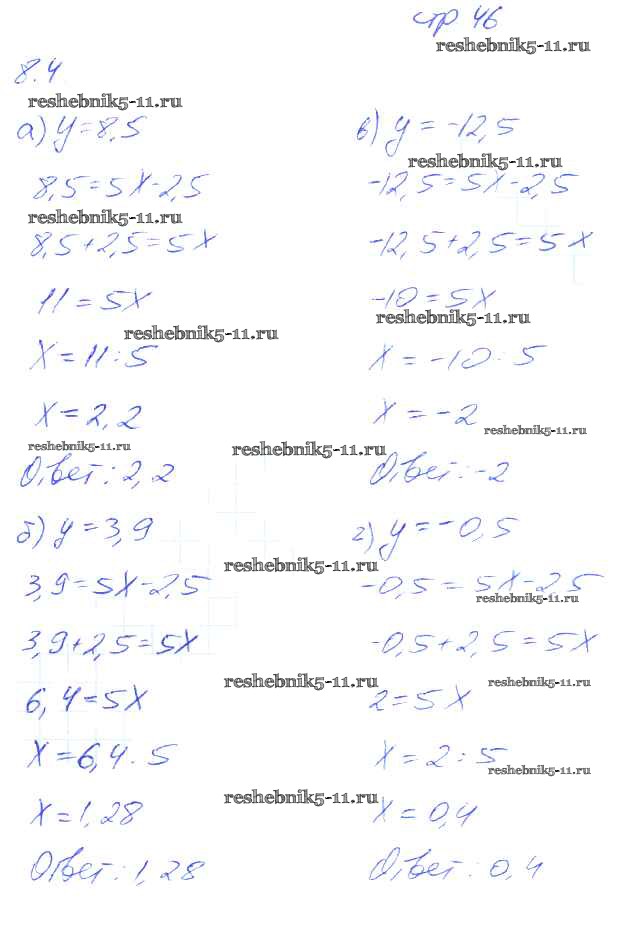 стр 46
reshebnik5-11.ru
8.4
reshebnik5-11.ru
а) y=8,5
8,5=5x-2,5
reshebnik5-11.ru
8,5+2,5=5x
11=5x
reshebnik5-11.ru
x=11:5
x=2,2
reshebnik5-11.ru
Ответ: 2,2
б) y=3,9
reshebnik5-11.ru
3,9=5x-2,5
3,9+2,5=5x
reshebnik5-11.ru
6,4=5x
x=6,4.5
reshebnik5-11.ru
x=1,28
Ответ: 1,28
в) y=-12,5
reshebnik5-11.ru
-12,5=5x-2,5
-12,5+2,5=5x
-10=5x
reshebnik5-11.ru
x=-10:5
x=-2
reshebnik5-11.ru
reshebnik5-11.ru
Ответ: -2
г) y=-0,5
-0,5=5x-2,5
reshebnik5-11.ru
-0,5+2,5=5x
reshebnik5-11.ru
2=5x
x=2:5
reshebnik5-11.ru
x=0,4
Ответ: 0,4